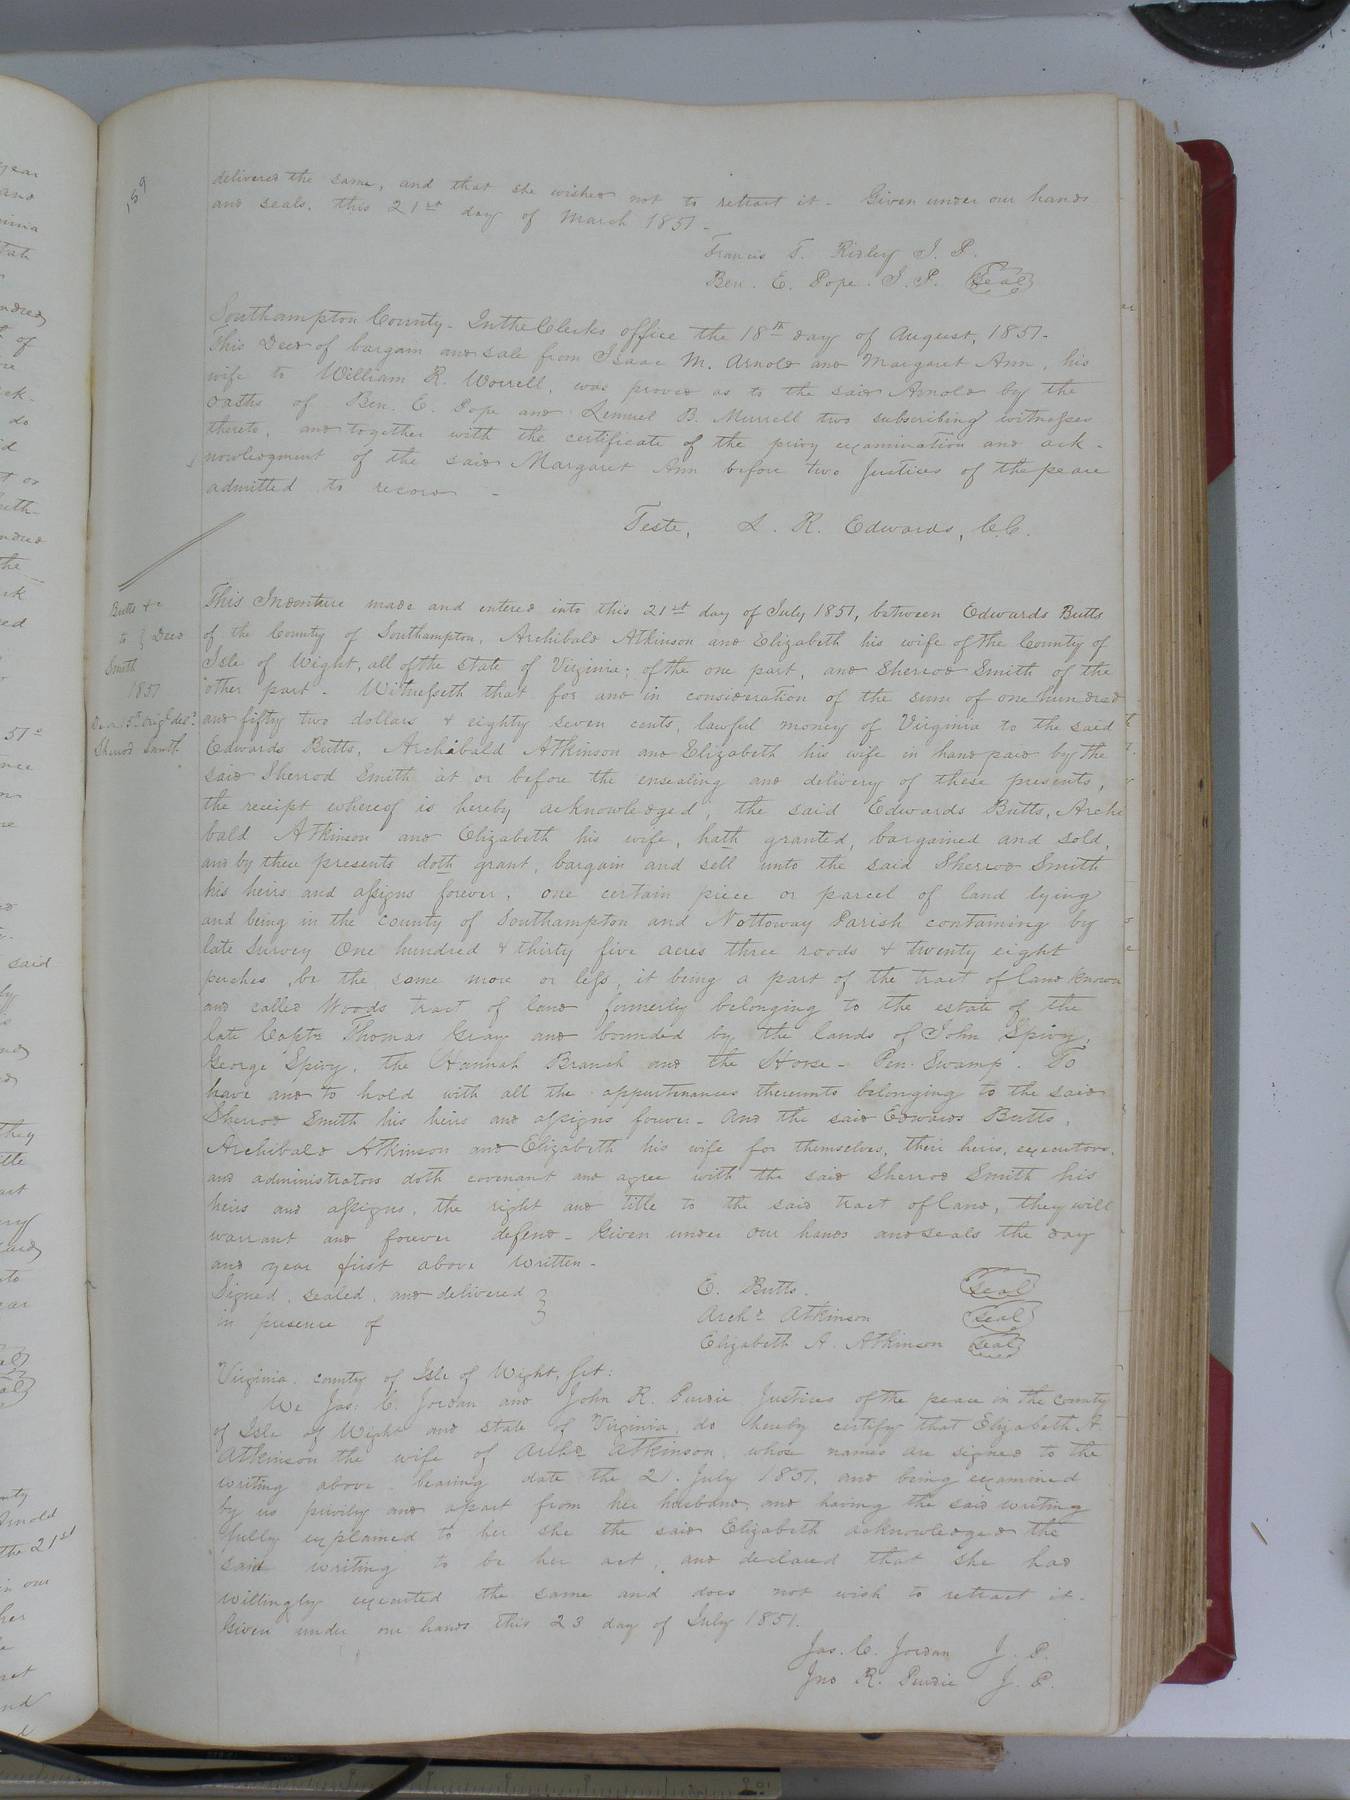 159
delivered the same, and that she wished not to retract it. Given under our hands
and seals, this 21st day of March 1851.
Francis T. Ridley J. P.
Ben. E. Pope. J. P. Seal
Southampton County. In the Clerks office the 18th day of August, 1851.
This Deed of bargain and sale from Isaac M. Arnold and Margaret Ann, his
wife to William R. Worrell, was proved as to the said Arnold by the
oaths of Ben. E. Pope and Lemuel B. Murrell two subscribing witnesses
thereto, and together with the certificate of the privy examination and ack-
nowledgment of the said Margaret Ann before two Justices of the peace
admitted to record -
Teste, L. R. Edwards, C.C.
Butts &c
to } Deed
Smith
1851
Sherod Smith
This Indenture made and entered into this 21st day of July 1851, between Edwards Butts
of the County of Southampton, Archibald Atkinson and Elizabeth his wife of the County of
Isle of Wight, all of the state of Virginia; of the one part, and Sherrod Smith of the
other part. Witnesseth that for and in consideration of the sum of one hundred
and fifty two dollars & eighty seven cents, lawful money of Virginia to the said
Edwards Butts, Archibald Atkinson and Elizabeth his wife in hand paid by the
said Sherrod Smith at or before the ensealing and delivery of these presents,
the receipt whereof is hereby acknowledged, the said Edwards Butts, Archi
bald Atkinson and Elizabeth his wife, hath granted, bargained and sold,
and by these presents doth grant, bargain and sell unto the said Sherrod Smith
his heirs and assigns forever, one certain piece or parcel of land lying
and being in the county of Southampton and Nottoway Parish containing by
late survey One hundred & thirty five acres three roods & twenty eight
perches, be the same more or less, it being a part of the tract of land known
and called Woods tract of land formerly belonging to the estate of the
late Capt. Thomas Gray and bounded by the lands of John Spivy,
George Spivy, the Hannah Branch and the Horse-Pen Swamp. To
have and to hold with all the appurtenances thereunto belonging to the said
Sherrod Smith his heirs and assigns forever. And the said Edwards Butts,
Archibald Atkinson and Elizabeth his wife for themselves, their heirs, executors,
and administrators doth covenant and agree with the said Sherrod Smith his
heirs and assigns, the right and title to the said tract of land, they will
warrant and forever defend. Given under our hands and seals the day
and year first above written.
Signed, sealed, and delivered }
in presence of
E. Butts. Seal
Archd Atkinson Seal
Elizabeth A. Atkinson Seal
Virginia, county of Isle of Wight, Sct:
We Jas: C. Jordan and John R. Purdie Justices of the peace in the county
of Isle of Wight and state of Virginia, do hereby certify that Elizabeth A.
Atkinson the wife of Archd Atkinson, whose names are signed to the
writing above bearing date the 21. July 1851, and being examined
by us privily and apart from her husband, and having the said writing
fully explained to her she the said Elizabeth acknowledged the
said writing to be her act, and declared that she had
willingly executed the same and does not wish to retract it.
Given under our hands this 23 day of July 1851.
Jas. C. Jordan J. P.
Jno R. Purdie J. P.